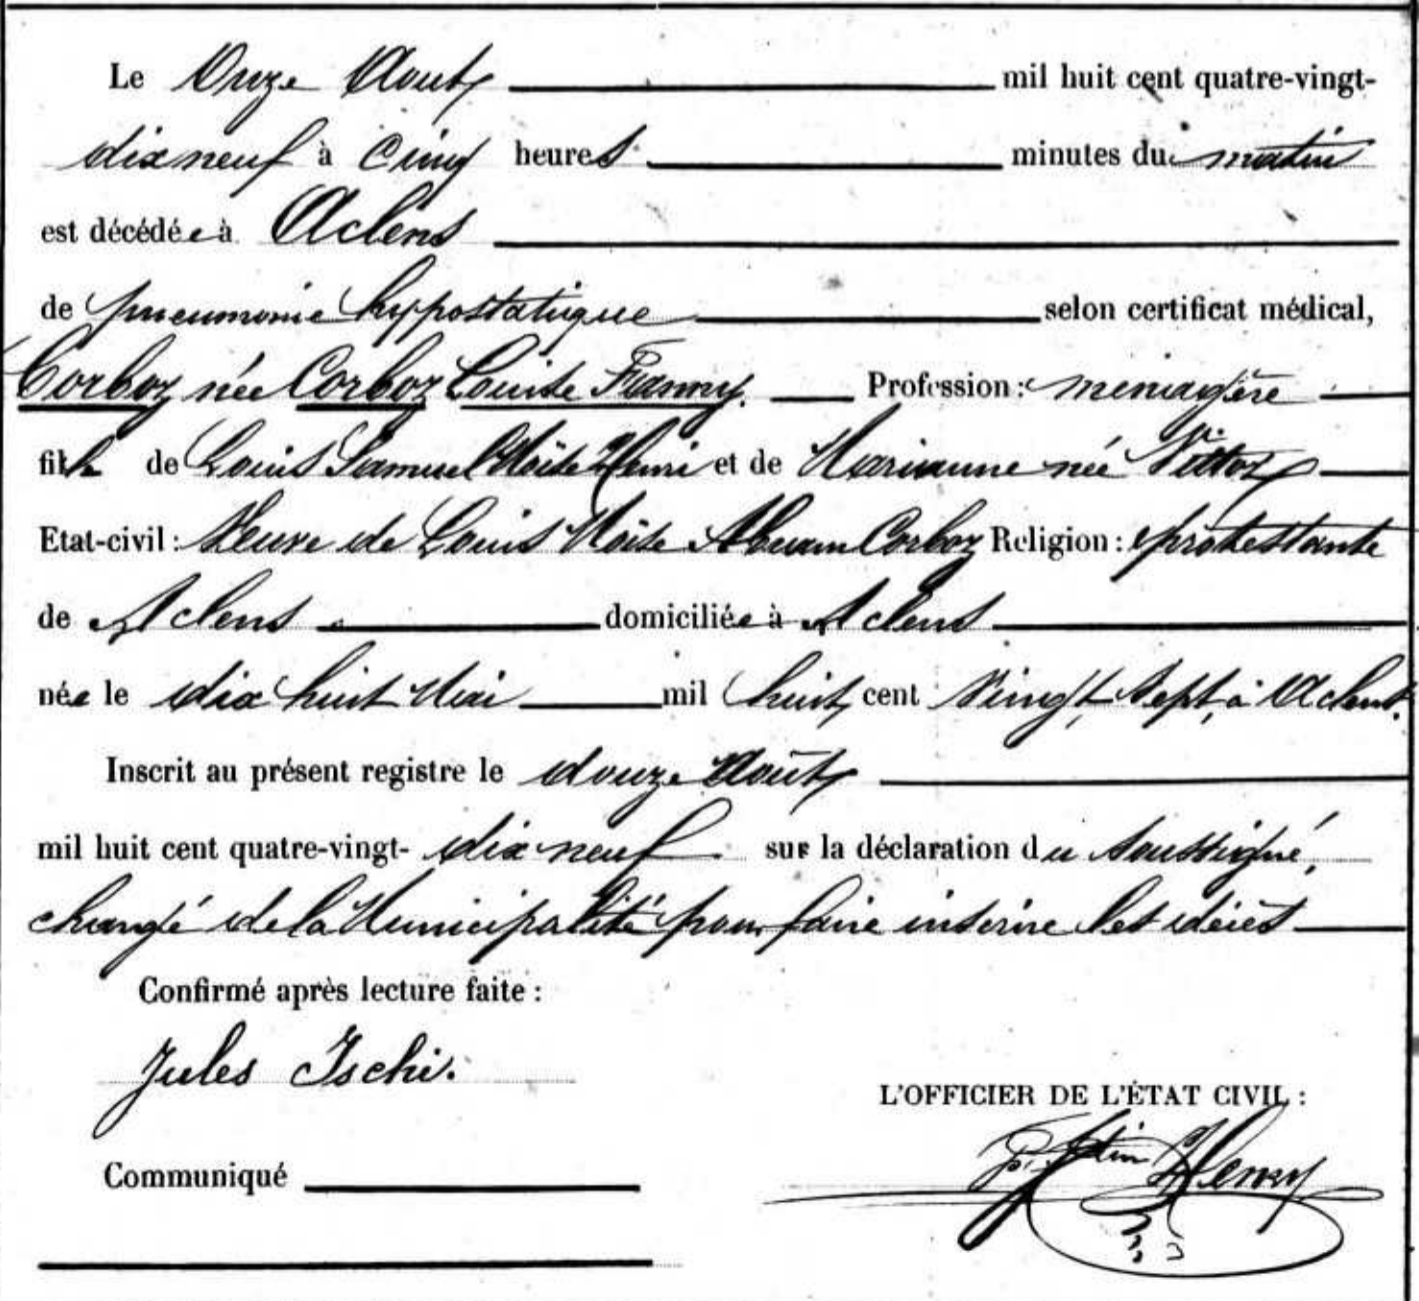 Le Onze Aout mil huit cent quatre-vingt-
dix neuf à cinq heures minutes du matin
est décédée à Aclens
de pneumonie hypostatique selon certificat médical,
Corboz née Corboz Louise Fanny. Profession : ménagère
fille de Louis Samuel Moïse Henri et de Marianne née Vittoz
Etat-civil : Veuve de Louis Moïse Abram Corboz Religion : protestante
de Aclens domiciliée à Aclens
née le dix huit Mai mil huit cent Vingt sept, à Aclens.
Inscrit au présent registre le douze Août
mil huit cent quatre-vingt- dix neuf sur la déclaration du soussigné,
chargé de la Municipalité pour faire inscrire les décès
Confirmé après lecture faite :
Jules Ischi.
L'OFFICIER DE L'ÉTAT CIVIL :
Henry
Communiqué